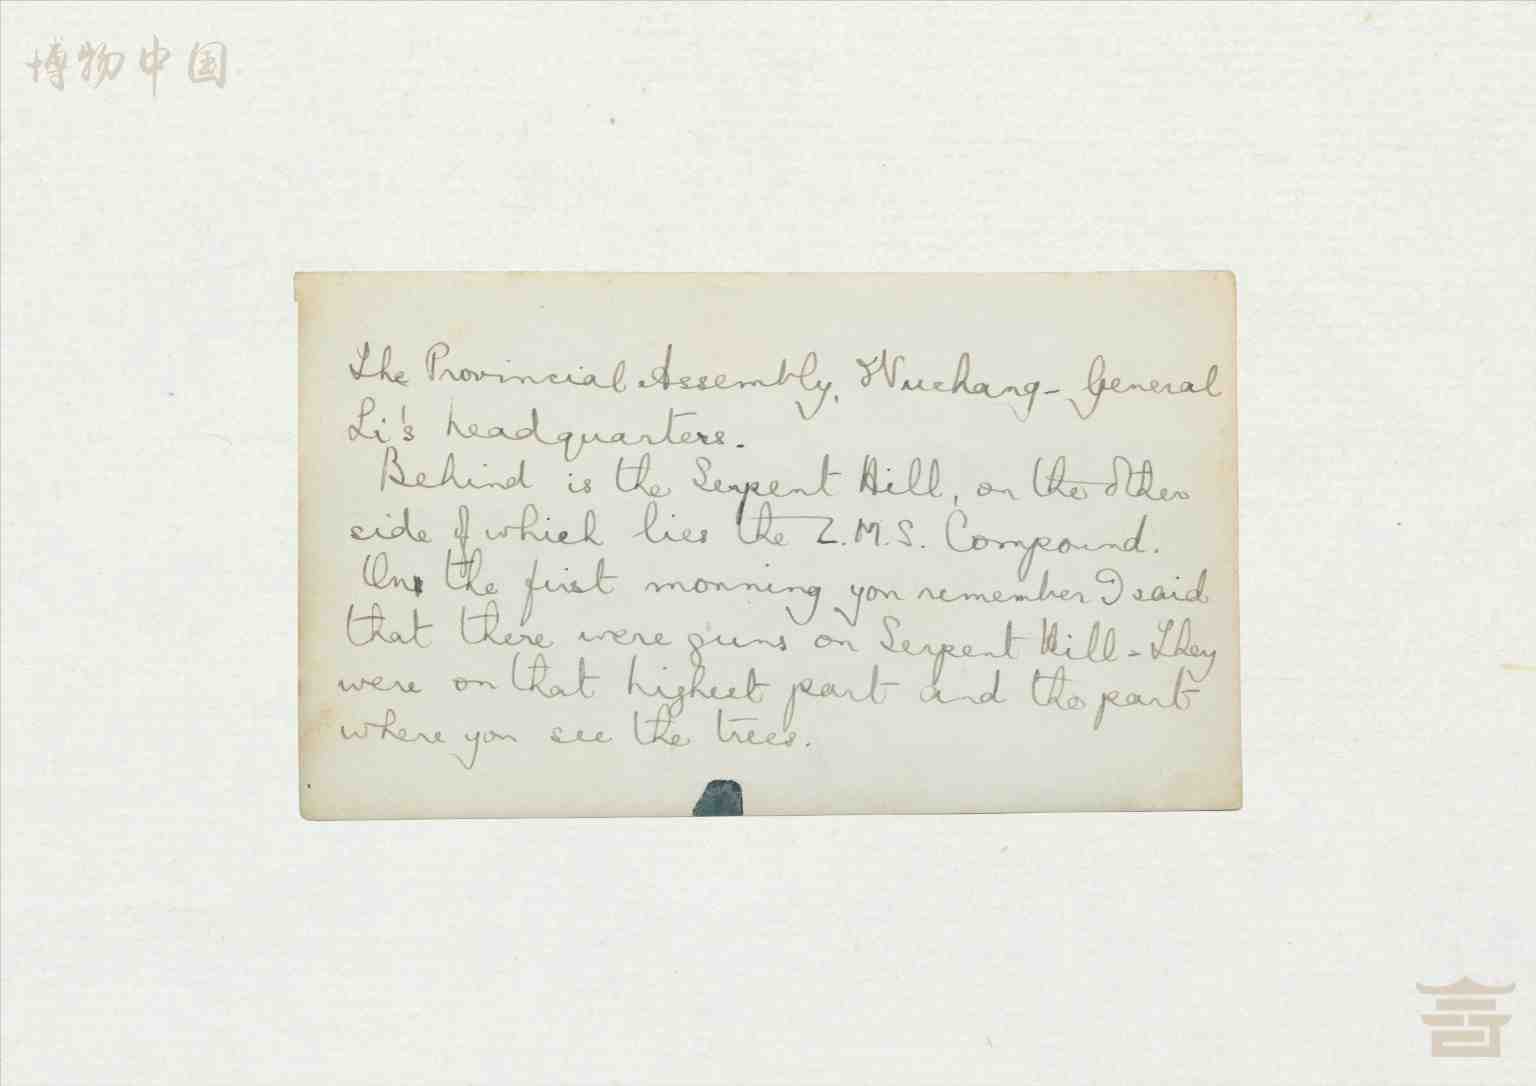 博物中国
The Provincial Assembly, Wuchang - General
Li's headquarters.
Behind is the Serpent Hill, on the other
side of which lies the L.M.S. Compound.
On the first morning you remember I said
that there were guns on Serpent Hill - They
were on that highest part and the part
where you see the trees.